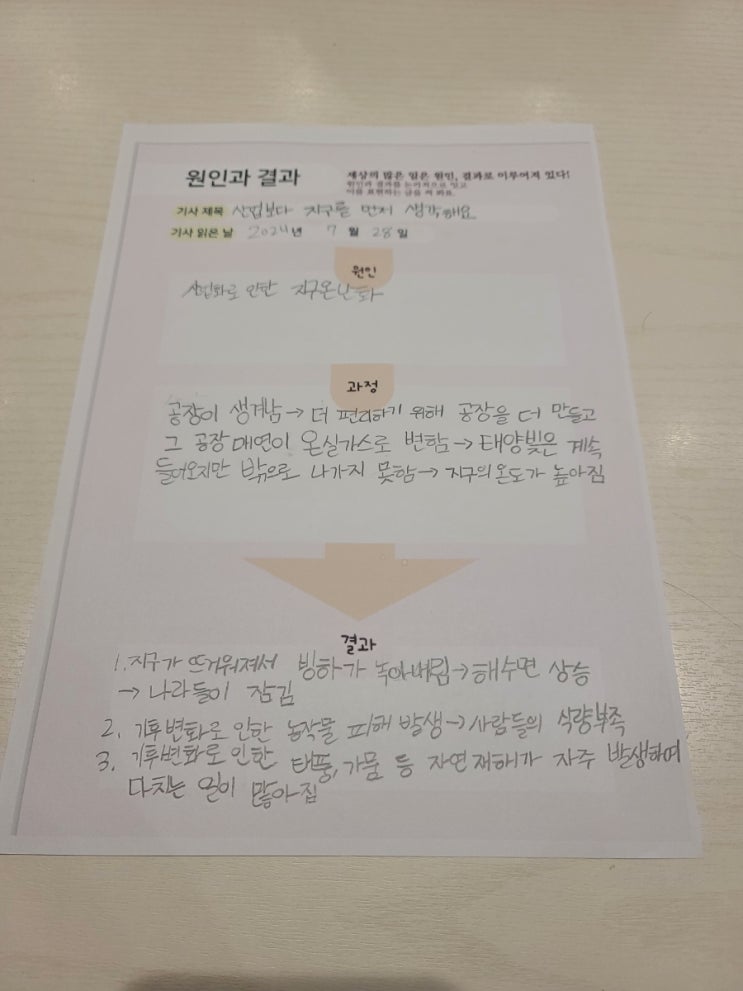 원인과 결과
세상의 많은 일은 원인, 결과로 이루어져 있다!
원인과 결과를 논리적으로 잇고
이를 표현하는 글을 써 봐요.
기사 제목 산업보다 지구를 먼저 생각해요
기사 읽은 날 2024년 7월 28일
원인
산업화로 인한 지구온난화
과정
공장이 생겨남→더 편리하기 위해 공장을 더 만들고
그 공장 매연이 온실가스로 변함→태양빛은 계속
들어오지만 밖으로 나가지 못함→지구의 온도가 높아짐
결과
1. 지구가 뜨거워져서 빙하가 녹아버림→해수면 상승
→나라들이 잠김
2. 기후변화로 인한 농작물 피해 발생→사람들의 식량부족
3. 기후변화로 인한 태풍, 가뭄 등 자연재해가 자주 발생하여
다치는 일이 많아짐